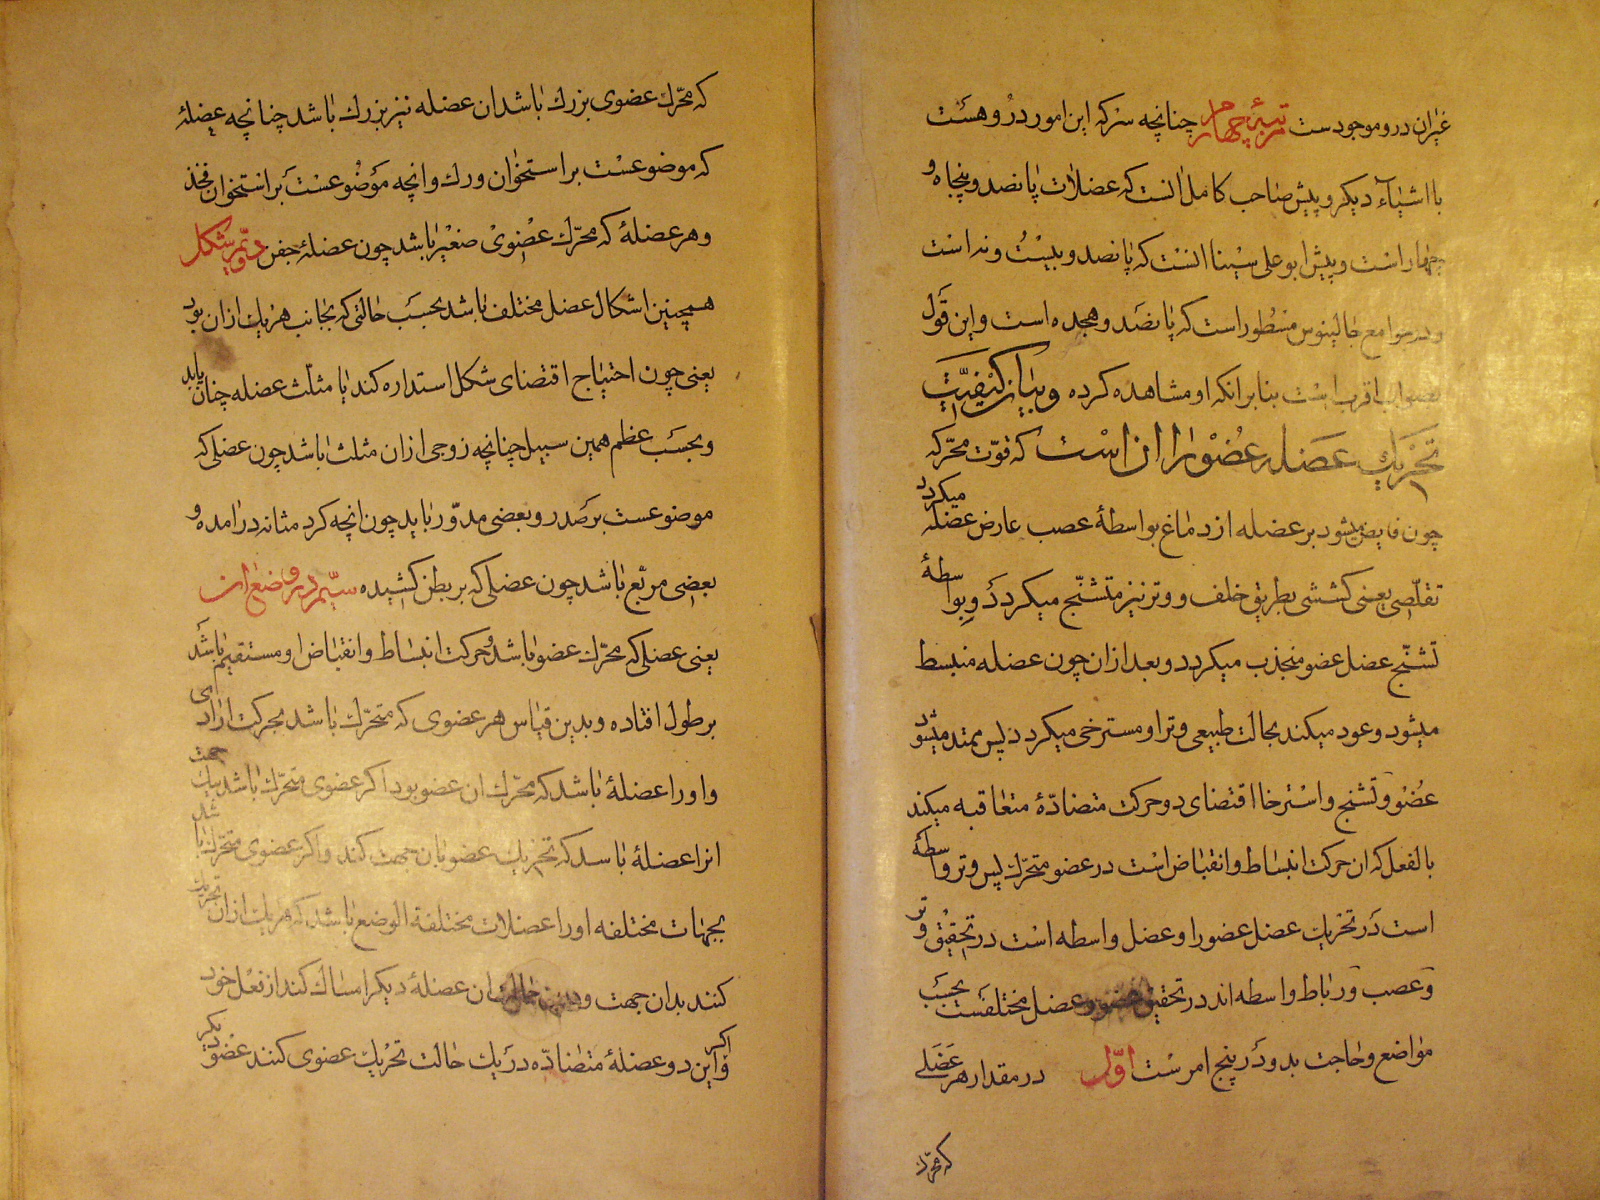 غیران درو موجودست مرتبهٔ چهارم چنانچه سرکه این امور درو هست
با اشیاء دیکر و پیش صاحب کامل انست که عضلات پانصد و پنجاه و
چهار است و پیش ابو علی سینا انست که پانصد و بیست و نه است
و در جوامع جالینوس مسطور است که پانصد و هجده است و این قول
بصواب اقرب است بنا برانکه او مشاهده کرده و بیان کیفیت
تحریک عضله عضو را ان است که قوت محرکه
چون فایض میشود بر عضله از دماغ بواسطهٔ عصب عارض عضله میکردد
تقلصی یعنی کششی بطریق خلف و وتر نیز متشنج میکردد و بواسطهٔ
تشنج عضل عضو منجذب میکردد و بعد ازان چون عضله منبسط
میشود و عود میکند بحالت طبیعی وتر او مسترخی میکردد پس ممتد میشود
عضو و تشنج و استرخا اقتضای دو حرکت متضادهٔ متعاقبه میکند
بالفعل که ان حرکت انبساط و انقباض است در عضو متحرک پس وتر واسطهٔ
است در تحریک عضل عضو را و عضل واسطه است در تحقیق وتر
و عصب و رباط واسطه اند در تحقیق عضل مختلفست بحسب
مواضع و حاجت بدو در پنج امرست اول در مقدار هر عضلی
که محرک
که محرک عضوی بزرک باشد ان عضله نیز بزرک باشد چنانچه عضلهٔ
که موضوعست بر استخوان ورک و انچه موضوعست بر استخوان فخذ
و هر عضلهٔ که محرک عضوی صغیر باشد چون عضلهٔ جفن دوم شکل
همچنین اشکال عضل مختلف باشد بحسب حالتی که بجانب هر یک ازان بود
یعنی چون احتیاج اقتضای شکل استداره کند یا مثلث عضله چنان باید
و بحسب عظم همین سبیل چنانچه زوجی ازان مثلث باشد چون عضلی که
موضوعست بر صدر و بعضی مدور باید چون انچه کرد مثانه درامده و
بعضی مربع باشد چون عضلی که بر بطن کشیده سیم در وضع ان
یعنی عضلی که محرک عضو باشد و حرکت انبساط و انقباض او مستقیم باشد
بر طول افتاده و بدین قیاس هر عضوی که متحرک باشد بحرکت ارادی
و او را عضلهٔ باشد که محرک ان عضو بود اکر عضوی متحرک باشد بیک جهت
انرا عضلهٔ باسد که تحریک عضو بان جهت کند و اکر عضوی متحرک باشد
بجهات مختلفه او را عضلات مختلفة الوضع باشد که هر یک ازان تحریک
کنند بدان جهت و ان عضلهٔ دیکر امساک کند از فعل خود
و اکر این دو عضلهٔ متضاده در یک حالت تحریک عضوی کنند عضو دیکر